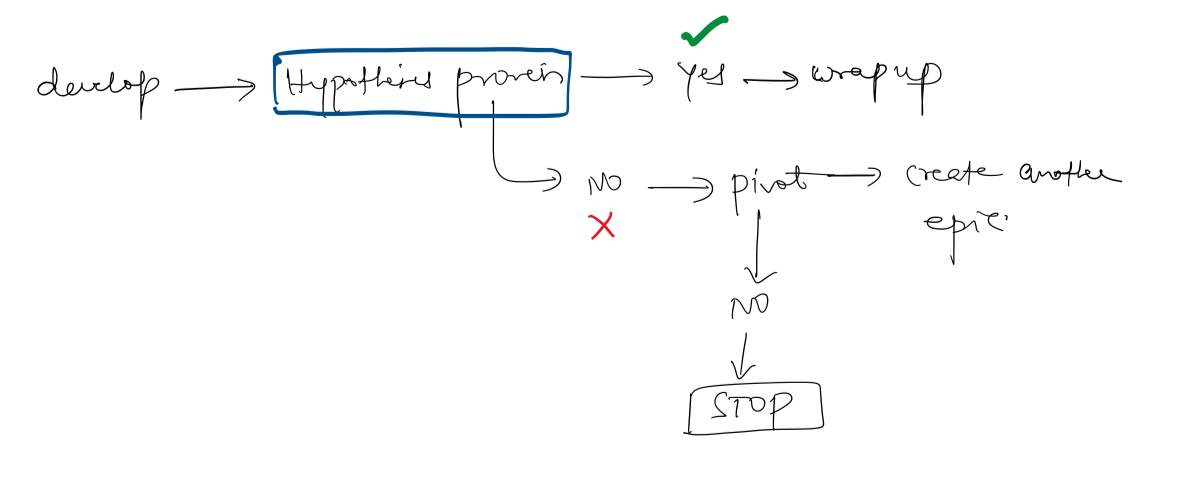 develop → Hypothesis proven → Yes → wrap up
NO → pivot → create another
epic
NO
STOP